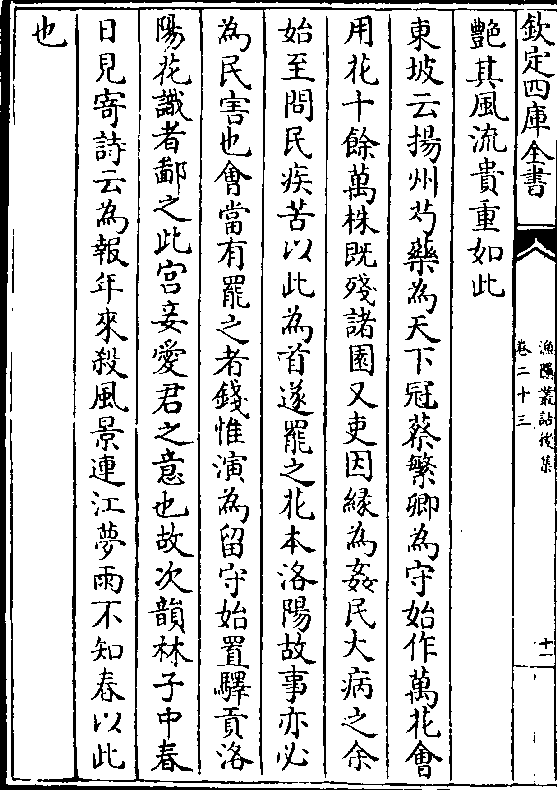 欽定四庫全書
漁隱叢話後集
卷二十三
十一
艷其風流貴重如此
東坡云揚州芍藥為天下冠蔡繁卿為守始作萬花會
用花十餘萬株既殘諸園又吏因緣為姦民大病之余
始至問民疾苦以此為首遂罷之花本洛陽故事亦必
為民害也會當有罷之者錢惟演為留守始置驛貢洛
陽花識者鄙之此宫妾愛君之意也故次韻林子中春
日見寄詩云為報年來殺風景連江夢雨不知春以此
也